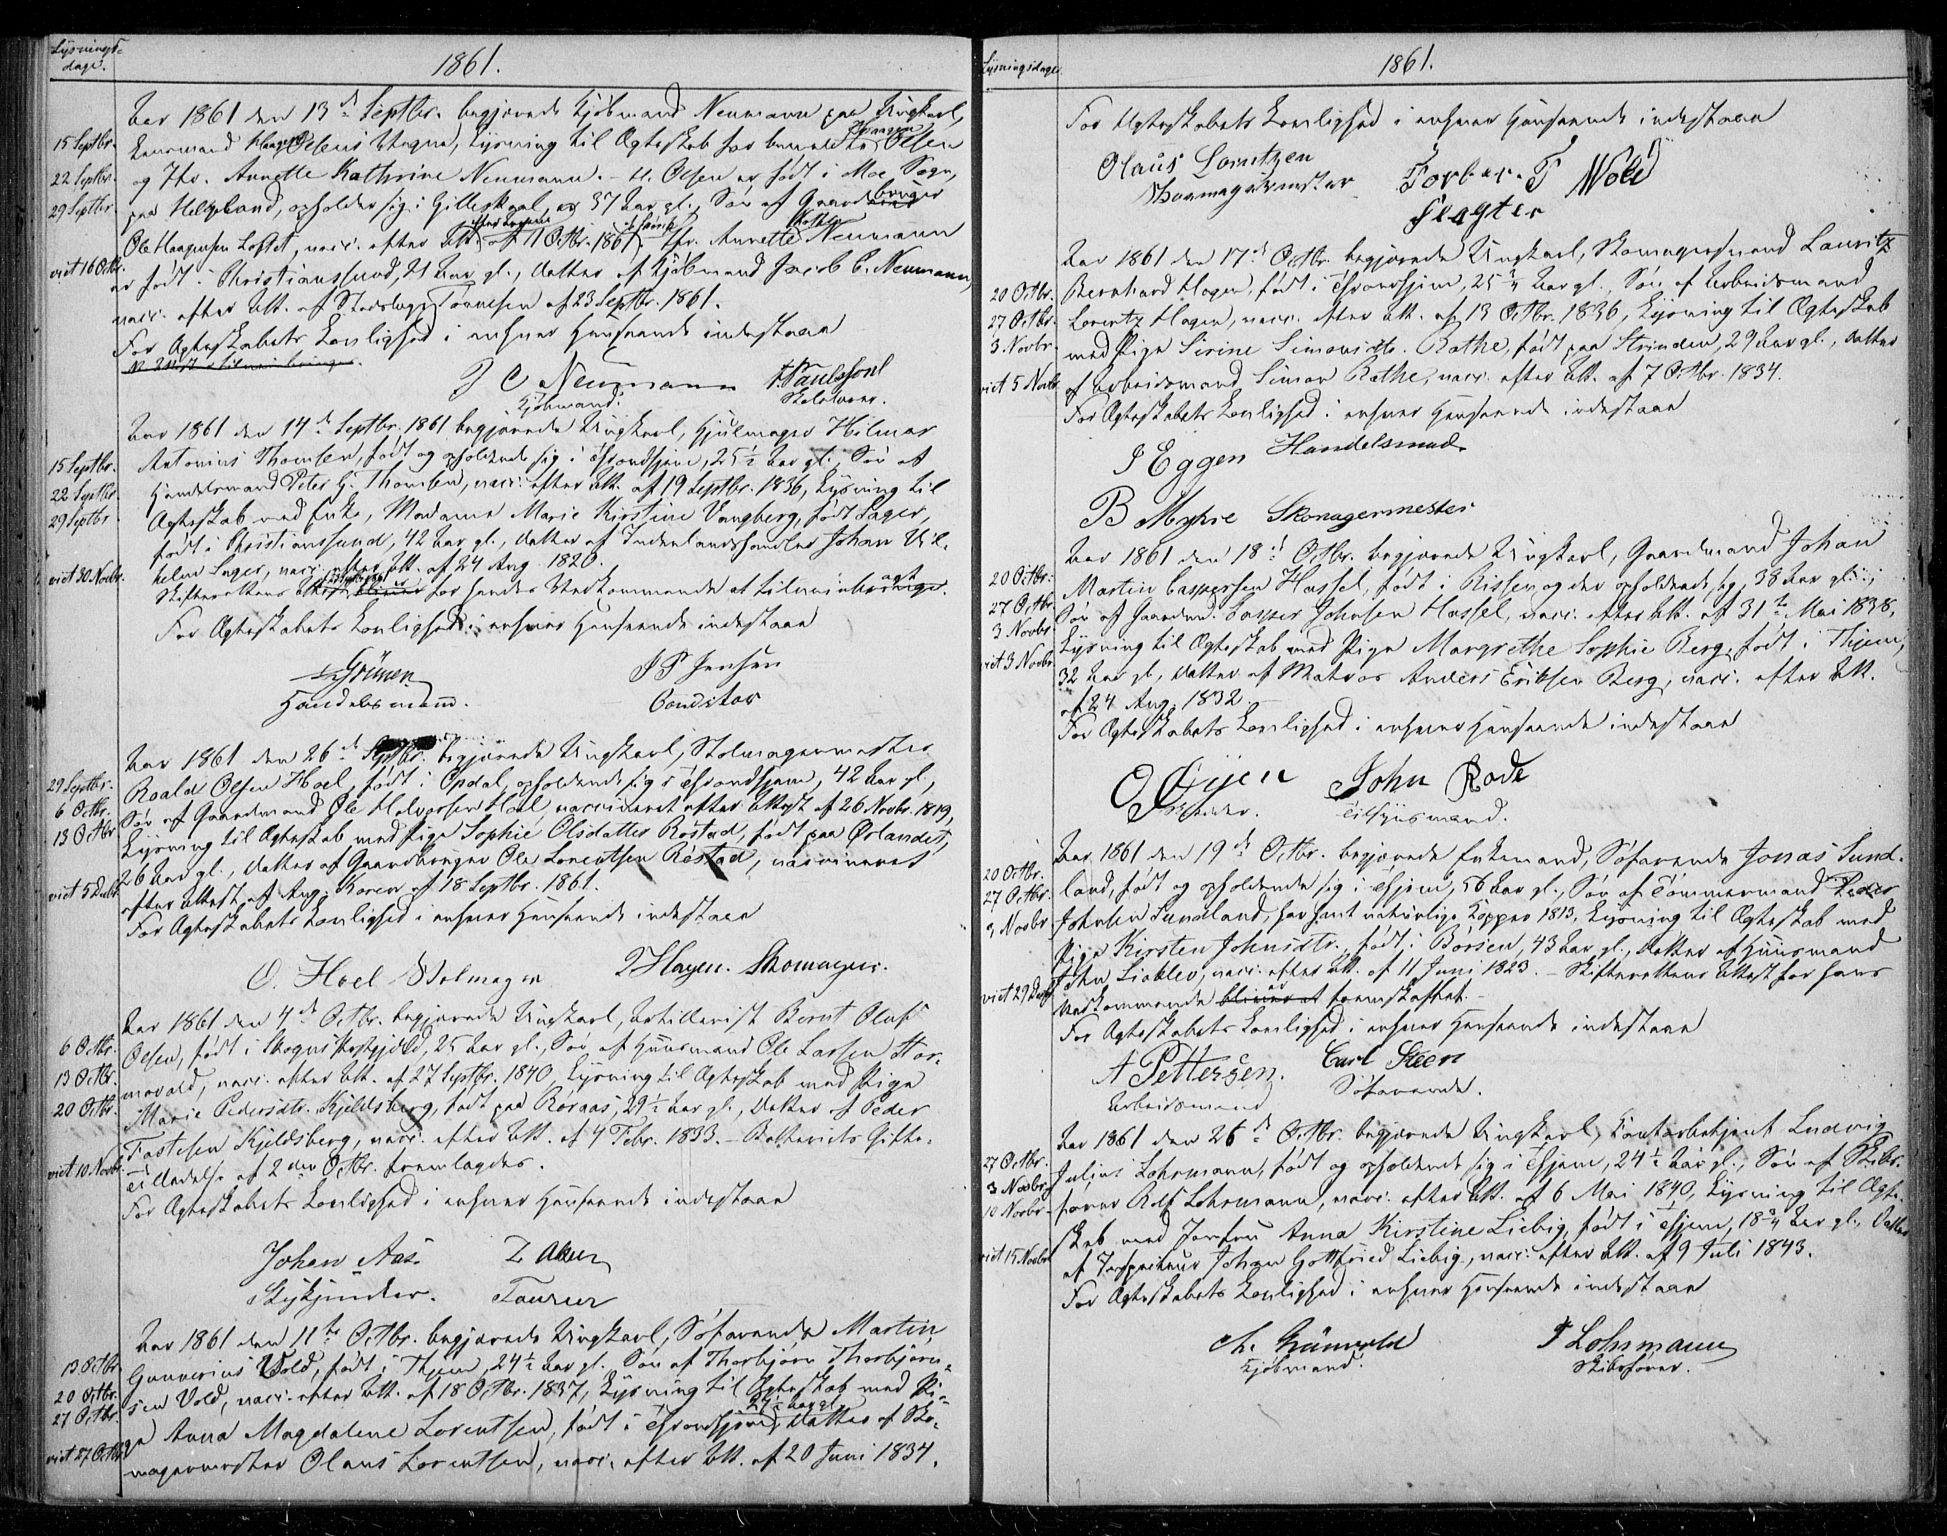 Lysnings-
dage.
1861.
Aar 1861 den 13de Septbr. begjærede Kjøbmand Neumann paa Ungkarl,
15 Septbr.
Lensmand Haagen Olsens Vegne, Lysning til Ægteskab for bemeldte Haagen Olsen
22 Septbr.
og Jfr. Annette Kathrine Neumann. – H. Olsen er født i Moe Sogn,
29 Septbr.
paa Helgeland, opholder sig i Gilleskaal, er 37 Aar gl., Søn af Gaardbruger
Ole Haagensen Loftet, vacc. efter Att. af 11 Octbr. 1861. Jfr. Annette Kath. Neumann
viet 16 Octbr.
er født i Christianssund, 21 Aar gl., Datter af Kjøbmand Jacob C. Neumann,
vacc. efter Att. af Stadslæge Tønnesen af 23 Septbr. 1861.
For Ægteskabets Lovlighed i enhver Henseende indestaae
J C Neumann
Kjøbmand.
Aar 1861 den 14de Septbr. 1861 begjærede Ungkarl, Hjulmager Hilmar
15 Septbr.
Antonius Thomsen, født og opholdende sig i Throndhjem, 25½ Aar gl., Søn af
22 Septbr.
Handelsmand Peter H. Thomsen, vacc. efter Att. af 19 Septbr. 1836, Lysning til
29 Septbr.
Ægteskab med Enke, Madame Marie Kirstine Vangberg, født Lager,
født i Christianssund, 42 Aar gl., Datter af Indenlandshandler Johan Vil-
helm Lager, vacc. efter Att. af 24 Aug. 1820.
viet 30 Novbr.
Skifterettens Attest for hendes Vedkommende at tilveiebringe.
For Ægteskabets Lovlighed i enhver Henseende indestaae
Grünen
Handelsmand.
J P Jensen
Conditor
Aar 1861 den 26de Septbr. begjærede Ungkarl, Stolmagermester
29 Septbr.
Roald Olsen Hoel, født i Opdal, opholdende sig i Throndhjem, 42 Aar gl.,
6 Octbr.
Søn af Gaardmand Ole Halvorsen Hoel, vaccineret efter Attest af 26 Novbr. 1819,
13 Octbr
Lysning til Ægteskab med Pige Sophie Olsdatter Røstad, født paa Ørlandet,
26 Aar gl., Datter af Gaardbruger Ole Lorentsen Røstad, vaccineret
viet 5 Decbr.
efter Attest af Aug. Koren af 18 Septbr. 1861.
For Ægteskabets Lovlighed i enhver Henseende indestaae
O. Hoel Stolmager
J Hagen. Skomager.
Aar 1861 den 4de Octbr. begjærede Ungkarl, Artillerist Bernt Oluf
6 Octbr.
Olsen, født i Skogns Præstgjeld, 25 Aar gl., Søn af Huusmand Ole Larsen Hor-
13 Octbr.
movald, vacc. efter Att. af 27 Septbr. 1840, Lysning til Ægteskab med Pige
20 Octbr.
Marie Pedersdtr. Kjeldsberg, født paa Røraas, 29½ Aar gl., Datter af Peder
Fastesen Kjeldsberg, vacc. efter Att. af 4 Febr. 1833. – Batteriets Gifte-
viet 10 Novbr.
tilladelse af 2den Octbr. fremlagdes.
For Ægteskabets Lovlighed i enhver Henseende indestaae
Johan Aas
Aar 1861 den 11te Octbr. begjærede Ungkarl, Søfarende Martin
13 Octbr.
Gunnerius Vold, født i Thjem, 24½ Aar gl. Søn af Thorbjørn Thorbjørn-
20 Octbr.
sen Vold, vacc. efter Att. af 18 Octbr. 1837, Lysning til Ægteskab med Pi-
27 Octbr.
ge Anna Magdalene Lorentsen, født i Throndhjem, Datter af Sko-
viet 27 Octbr.
magermester Olaus Lorentsen, vacc. efter Att. af 20 Juni 1834.
Lysningsdage
1861.
For Ægteskabets Lovlighed i enhver Henseende indestaae
Olaus Lorntzen
Skomagermester
Torber. T Wold
Slagter
Aar 1861 den 17de Octbr. begjærede Ungkarl, Skomagersvend Lauritz
20 Octbr.
Bernhard Hagen, født i Throndhjem, 25¾ Aar gl., Søn af Arbeidsmand
27 Octbr.
Lorentz Hagen, vacc. efter Att. af 13 Octbr. 1836, Lysning til Ægteskab
3 Novbr.
med Pige Sirine Simonsdtr. Rathe, født paa Strinden, 29 Aar gl., Datter
viet 5 Novbr.
af Arbeidsmand Simon Rathe, vacc. efter Att. af 7 Octbr. 1834.
For Ægteskabets Lovlighed i enhver Henseende indestaae
J Eggen Handelsmad
B Myhre Skomagermester
Aar 1861 den 18de Octbr. begjærede Ungkarl, Gaardmand Johan
20 Octbr.
Martin Caspersen Hassel, født i Rissen og der opholdende sig, 38 Aar gl.,
27 Octbr.
Søn af Gaardmd. Casper Johnsen Hassel, vacc. efter Att. af 31te Mai 1838,
3 Novbr.
Lysning til Ægteskab med Pige Margrethe Sophie Berg, født i Thjem,
viet 3 Novbr.
32 Aar gl., Datter af Matros Anders Eriksen Berg, vacc. efter Att.
af 24 Aug. 1832.
For Ægteskabets Lovlighed i enhver Henseende indestaae
John Rode
Tilsynsmand.
Aar 1861 den 19de Octbr. begjærede Enkemand, Søfarende Jonas Sund-
20 Octbr.
land, født og opholdende sig i Thjem, 56 Aar gl., Søn af Tømmermand Peder
27 Octbr.
Johnsen Sundland, har havt naturlige Kopper 1813, Lysning til Ægteskab med
3 Novbr
Pige Kirsten Johnsdtr., født i Børsen, 43 Aar gl., Datter af Huusmand
John Lioklev, vacc. efter Att. af 11 Juni 1823. – Skifterettens Attest for hans
viet 29 Decbr
Vedkommende bliver at fremskaffet.
For Ægteskabets Lovlighed i enhver Henseende indestaae
A Pettersen.
Arbeidsmand
Carl Steen
Søfarende.
Aar 1861 den 26de Octbr. begjærede Ungkarl, Contorbetjent Ludvig
27 Octbr.
Julius Lohrmann, født og opholdende sig i Thjem, 24½ Aar gl., Søn af Skibs-
3 Novbr.
fører Rolf Lohrmann, vacc. efter Att. af 6 Mai 1840, Lysning til Ægte-
10 Novbr.
skab med Jomfru Anna Kirstine Liebig, født i Thjem, 18¾ Aar gl., Datter
viet 15 Novbr.
af Inspecteur Johan Gottfried Liebig, vacc. efter Att. af 9 Juli 1843.
For Ægteskabets Lovlighed i enhver Henseende indestaae
Ch. Grünwald
Kjøbmand.
Lohrmann
Skibsfører.